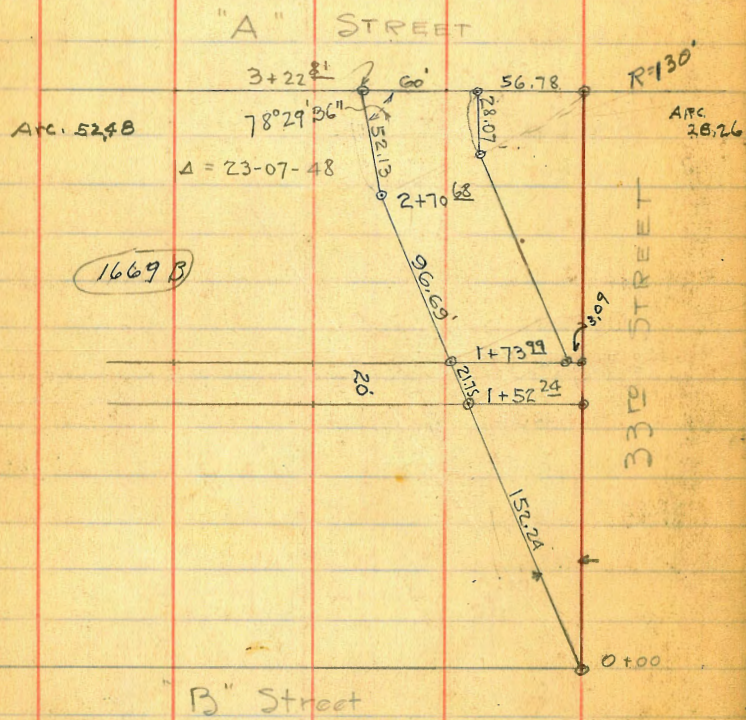 "A" STREET
3+22 81
60'
56.78
R=130'
Arc. 52,48
78°29'36"
52.13
28.07
Arc. 28,26
Δ = 23-07-48
2+70 68
1669 B
96.69'
3,09
33rd STREET
1+73 99
20'
21.75
1+52 24
152.24
0+00
"B" Street